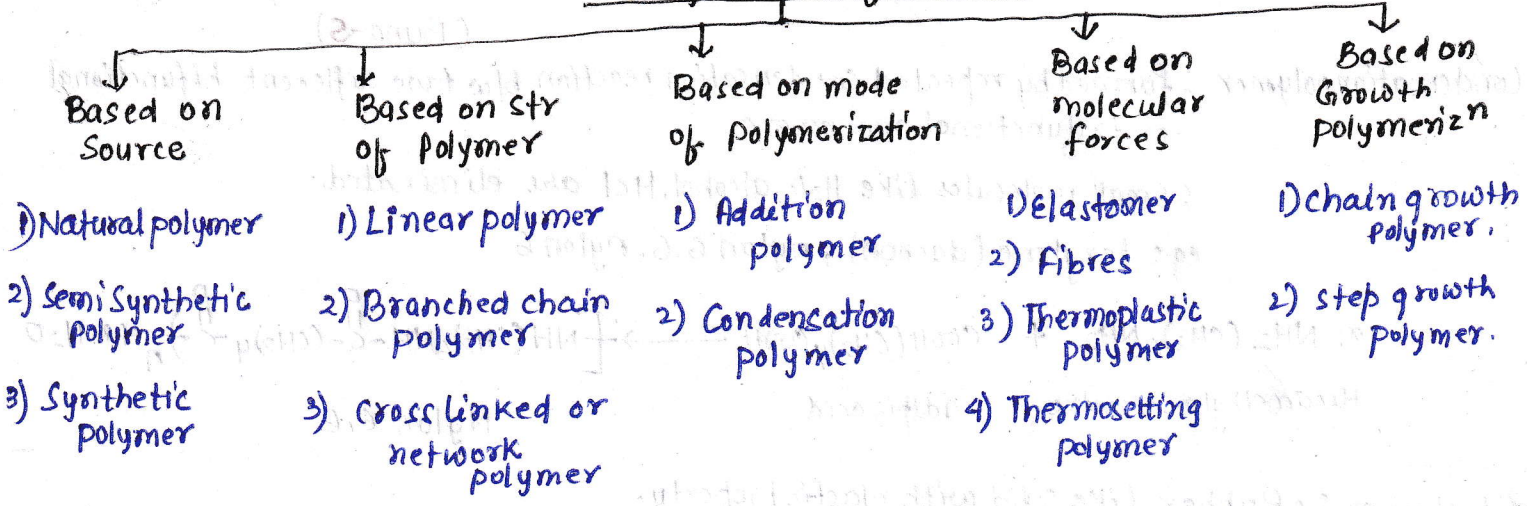 Based on
Source
1) Natural polymer
2) Semi Synthetic
polymer
3) Synthetic
polymer
Based on Str
of Polymer
1) Linear polymer
2) Branched chain
polymer
3) Cross linked or
network
polymer
Based on mode
of Polymerization
1) Addition
polymer
2) Condensation
polymer
Based on
molecular
forces
1) Elastomer
2) Fibres
3) Thermoplastic
polymer
4) Thermosetting
polymer
Based on
Growth
polymerizn
1) chain growth
polymer.
2) step growth
polymer.